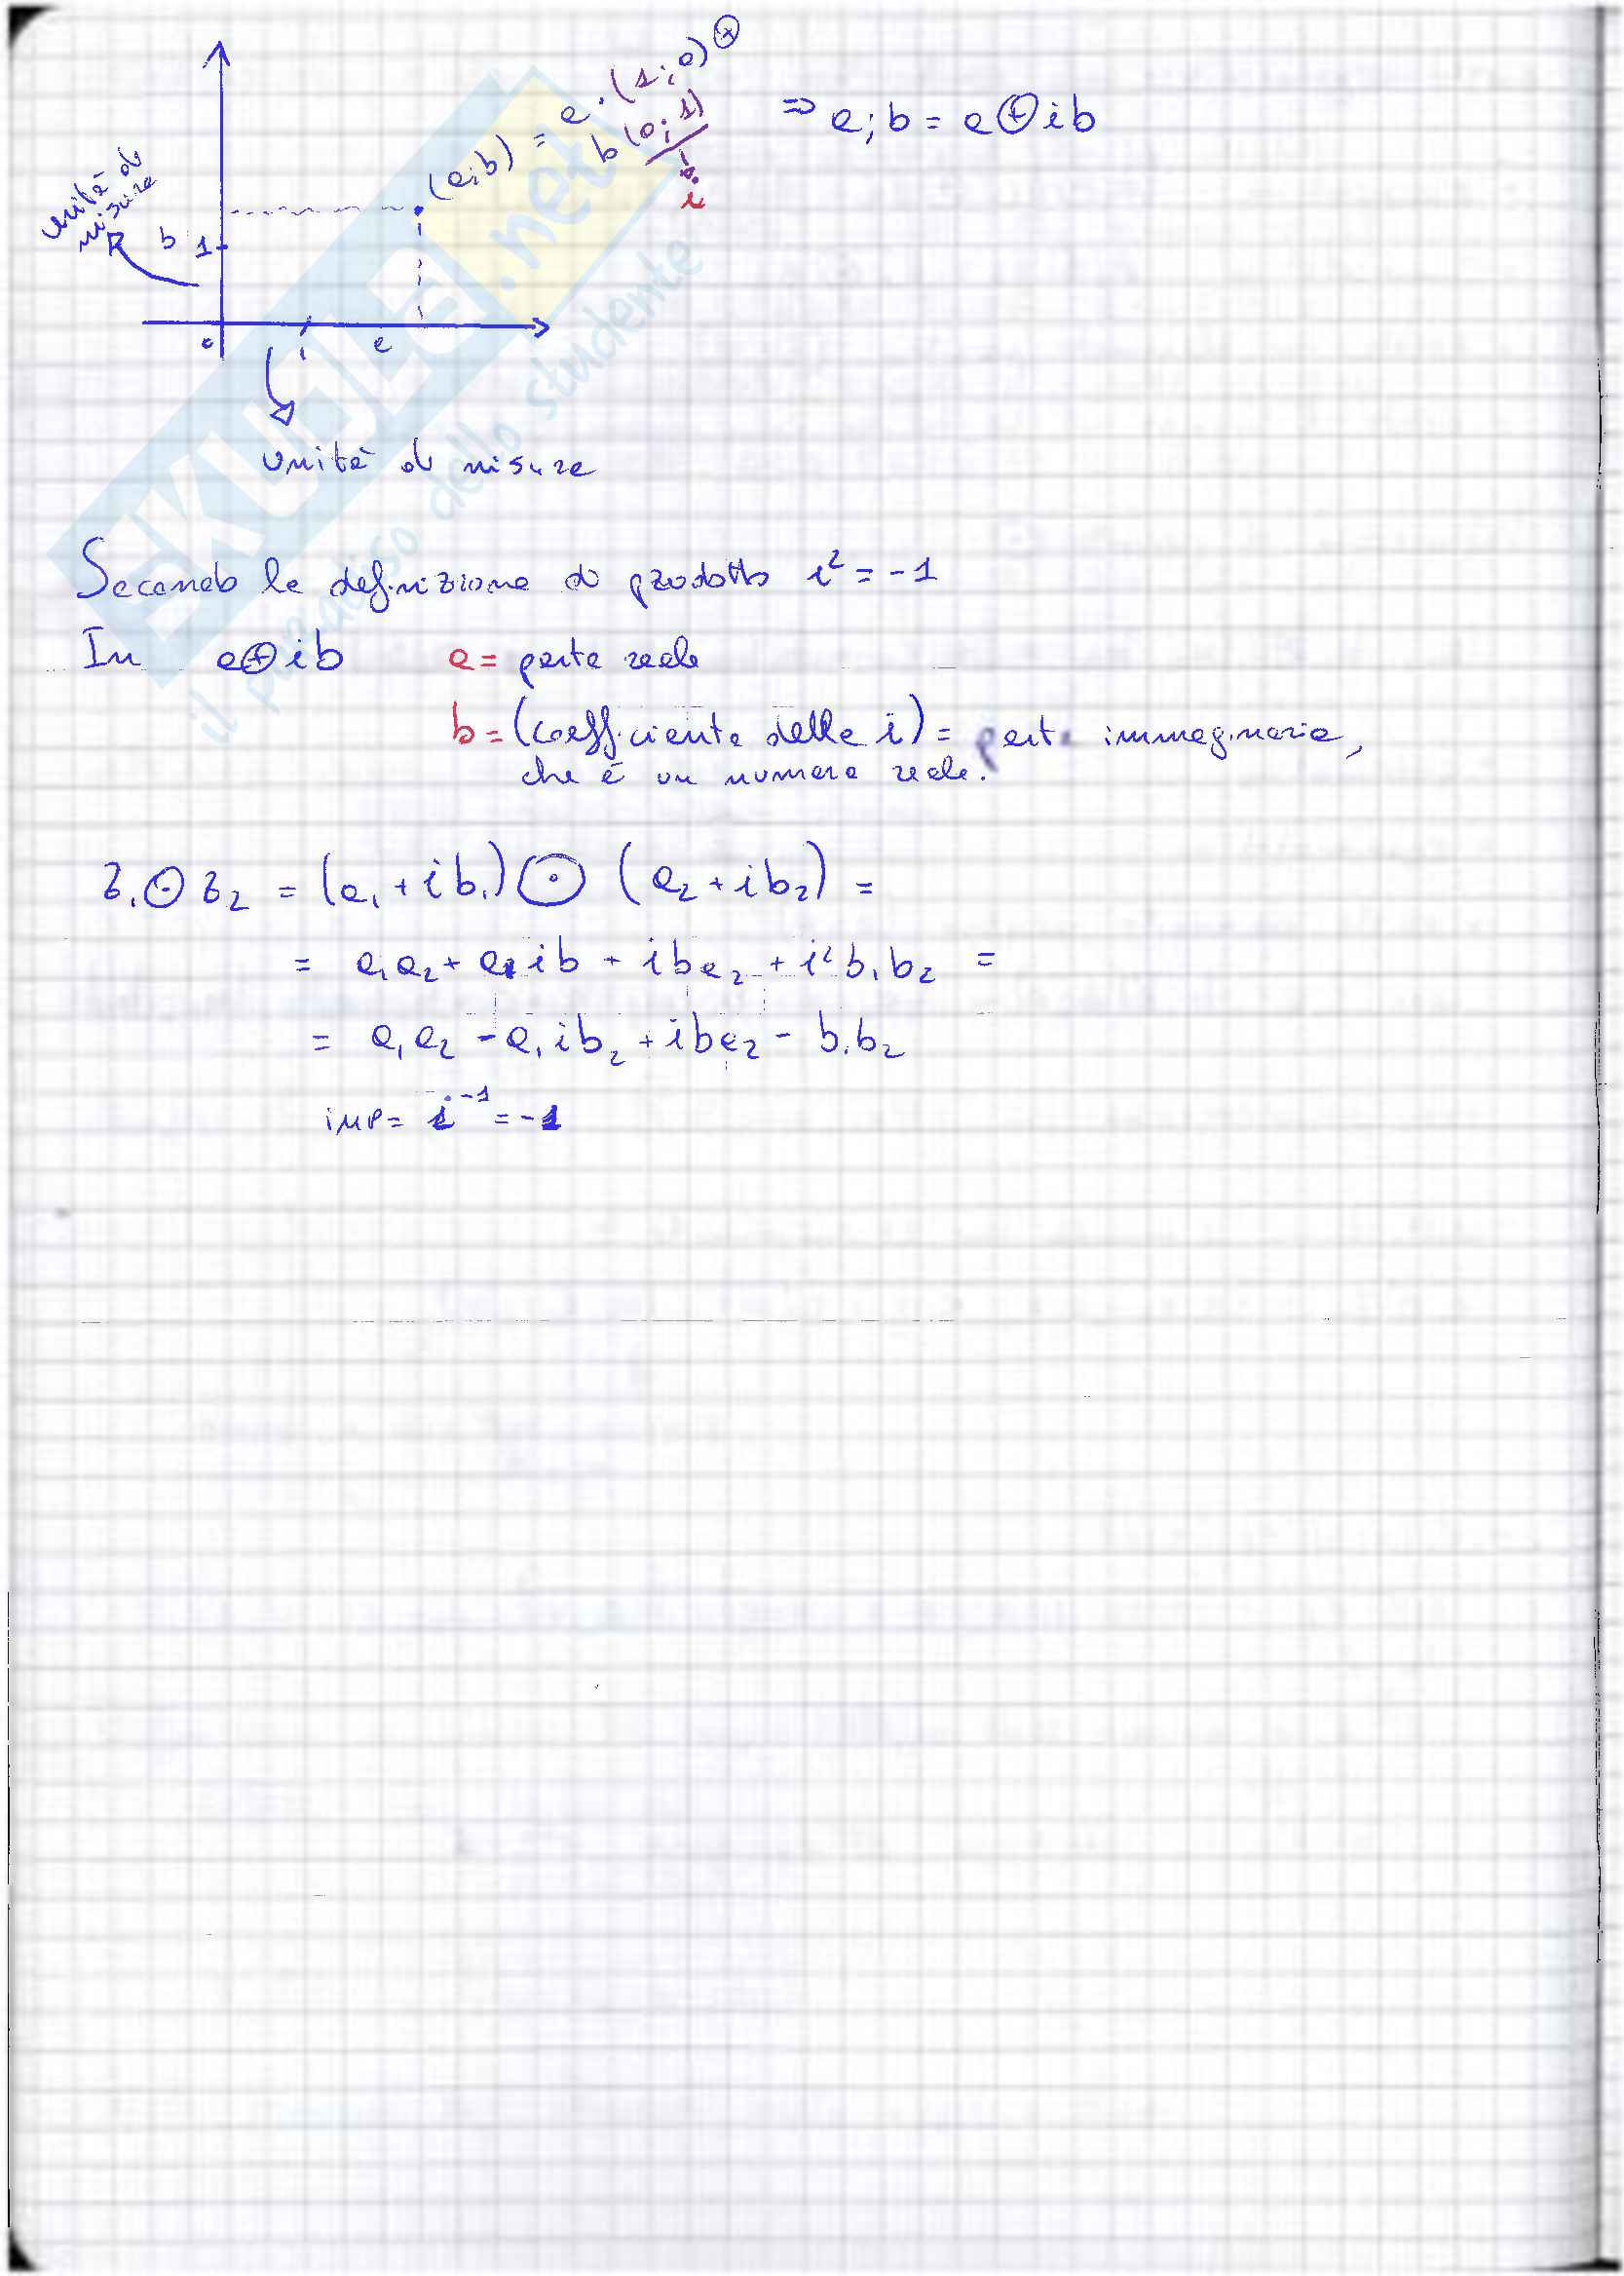 (a;b) = a·(1;0) ⊕
b(0;1)
i
⇒ a;b = a⊕ib
unità di
misura
b 1
o 1 a
unità di misura
SKUOLA.net
il paradiso dello studente
Secondo la definizione di prodotto i² = -1
In a⊕ib a = parte reale
b = (coefficiente della i) = parte immaginaria,
che è un numero reale.
z₁⊙z₂ = (a₁+ib₁)⊙(a₂+ib₂) =
= a₁a₂+a₁ib+iba₂+i²b₁b₂ =
= a₁a₂-a₁ib₂+iba₂-b₁b₂
imp= i⁻¹=-1